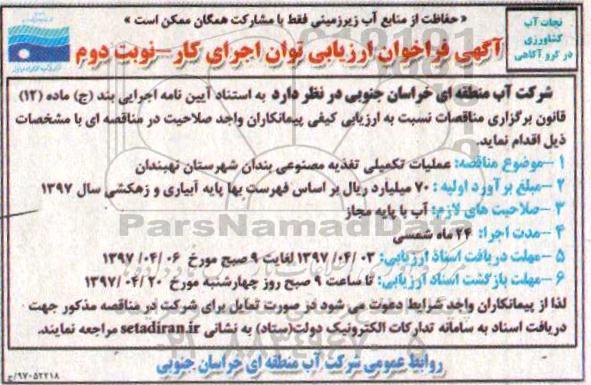 « حفاظت از منابع آب زیرزمینی فقط با مشارکت همگان ممکن است »
نجات آب
کشاورزی
در گرو آگاهی
آگهی فراخوان ارزیابی توان اجرای کار – نوبت دوم
شرکت آب منطقه ای خراسان جنوبی در نظر دارد به استناد آیین نامه اجرایی بند (ج) ماده (۱۲)
قانون برگزاری مناقصات نسبت به ارزیابی کیفی پیمانکاران واجد صلاحیت در مناقصه ای با مشخصات
ذیل اقدام نماید.
۱ –موضوع مناقصه: عملیات تکمیلی تغذیه مصنوعی بندان شهرستان نهبندان
۲ –مبلغ برآورد اولیه : ۷۰ میلیارد ریال بر اساس فهرست بها پایه آبیاری و زهکشی سال ۱۳۹۷
۳ –صلاحیت های لازم: آب با پایه مجاز
۴ –مدت اجرا: ۲۴ ماه شمسی
۵ –مهلت دریافت اسناد ارزیابی: ۰۳ /۰۴/ ۱۳۹۷ لغایت ۹ صبح مورخ ۰۶ /۰۴/ ۱۳۹۷
۶ –مهلت بازگشت اسناد ارزیابی: تا ساعت ۹ صبح روز چهارشنبه مورخ ۲۰ /۰۴/ ۱۳۹۷
لذا از پیمانکاران واجد شرایط دعوت می شود در صورت تمایل برای شرکت در مناقصه مذکور جهت
دریافت اسناد به سامانه تدارکات الکترونیک دولت(ستاد) به نشانی setadiran.ir مراجعه نمایند.
روابط عمومی شرکت آب منطقه ای خراسان جنوبی
۹۷۰۵۲۲۱۸/ح
ParsNamadData